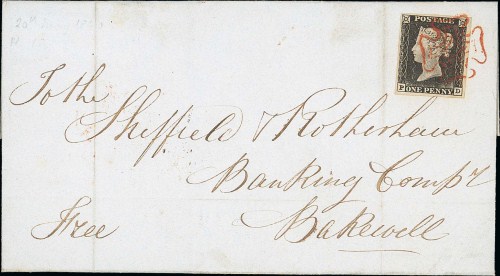 POSTAGE
ONE PENNY
P D
To the
Sheffield & Rotherham
Banking Compy
Bakewell
Free